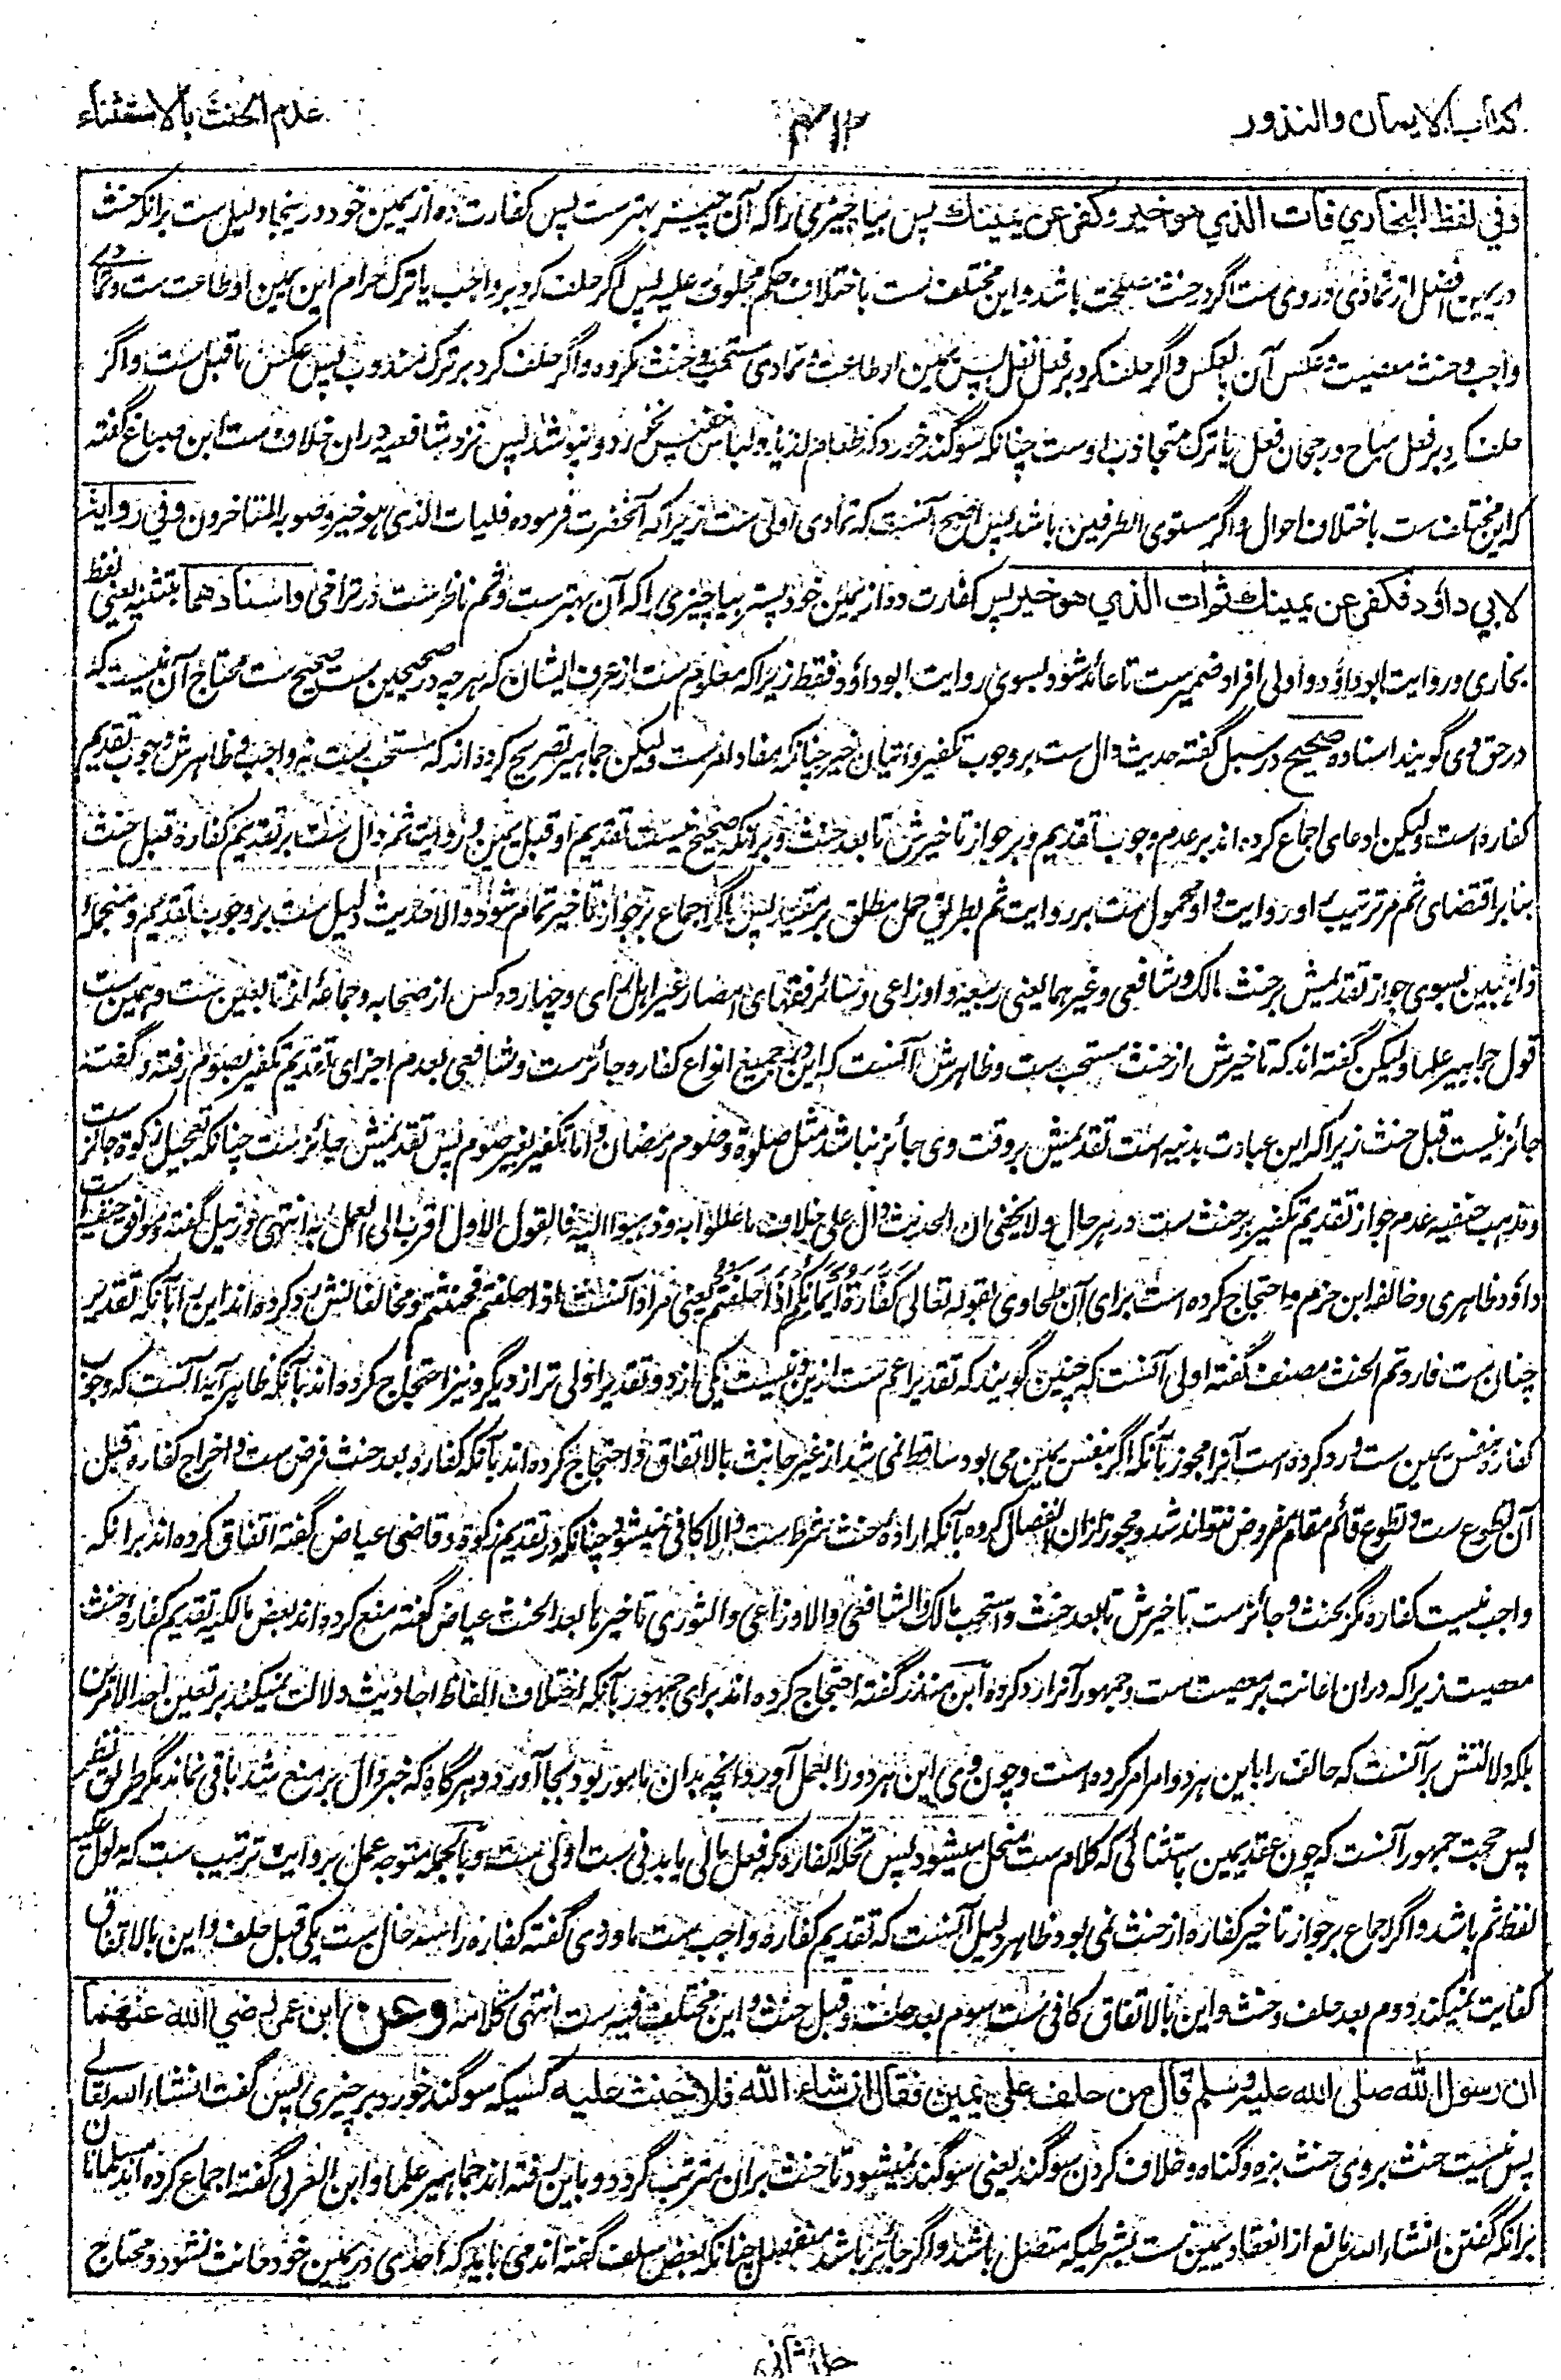 کتاب الایمان والنذور
۴۱۲
عدم الحنث بالاستثناء
وفي لفظ البخاري فات الذي هو خير وكفر عن يمينك پس بیا چیزی را که آن چیز بهترست پس کفارت ده از یمین خود درینجا دلیل ست برانکه حنث
در یمین افضل از تمادی دروی ست اگر در حنث مصلحت باشد و این مختلف ست باختلاف حکم محلوف علیه پس اگر حلف کرد بر واجب یا ترک حرام این یمین او طاعت ست و تمادی
واجب و حنث معصیت و عکس آن بالعکس و اگر حلف کرد بر فعل نفل پس یمین او طاعت و تمادی مستحب و حنث مکروه و اگر حلف کرد بر ترک مندوب پس عکس ماقبل ست و اگر
حلف کرد بر فعل مباح و رجحان فعل یا ترک متجاذب اوست چنانکه سوگند خورد که طعام لذیذ و لباس نفیس نخورد و نپوشد پس نزد شافعیه دران خلاف ست ابن صباغ گفته
که این مختلف ست باختلاف احوال و اگر مستوی الطرفین باشد پس اصح آنست که تمادی اولی ست زیراکه آنحضرت فرموده فلیات الذی هو خیر وصوبه المتاخرون وفي رواية
لابي داؤد فكفر عن يمينك ثم ات الذي هو خير پس کفارت ده از یمین خود پستر بیا چیزی را که آن بهترست و ثم ناظرست در تراخی واسنادهما بتثنیه یعنی لفظ
بخاری و روایت ابوداؤد و اولی افراد ضمیرست تا عائد شود بسوی روایت ابوداؤد فقط زیراکه معلوم ست از عرف ایشان که هرچه در صحیحین ست صحیح ست محتاج آن نیست که
در حق وی گویند اسناده صحیح در سبل گفته حدیث دال ست بر وجوب تکفیر و اتیان خیر چنانکه مفاد امرست ولیکن جماهیر تصریح کرده اند که مستحب ست نه واجب و ظاهرش وجوب تقدیم
کفاره است ولیکن ادعای اجماع کرده اند بر عدم وجوب تقدیم و بر جواز تاخیرش تا بعد حنث و برانکه صحیح نیست تقدیم او قبل یمین و روایت ثم دال ست بر تقدیم کفاره قبل حنث
بنا بر اقتضای ثم مر ترتیب را و روایت واو محمول ست بر روایت ثم بطریق حمل مطلق بر مقید پس اگر اجماع بر جواز تاخیر تمام شود والا حدیث دلیل ست بر وجوب تقدیم و منجمله
ذاهبین بسوی جواز تقدیمش بر حنث مالک و شافعی و غیرهما یعنی ربیعه و اوزاعی و سائر فقهای امصار غیر اهل رای و چهارده کس از صحابه و جماعه از تابعین ست و همین ست
قول جماهیر علما ولیکن گفته اند که تاخیرش از حنث مستحب ست و ظاهرش آنست که این در جمیع انواع کفاره جائزست و شافعی بعدم اجزای تقدیم تکفیر بصوم رفته و گفته
جائز نیست قبل حنث زیراکه این عبادت بدنیه است تقدیمش بر وقت وی جائز نباشد مثل صلوة و صوم رمضان و اما تکفیر بغیر صوم پس تقدیمش جائزست چنانکه تعجیل زکوة جائزست
و مذهب حنفیه عدم جواز تقدیم تکفیر بر حنث ست در هر حال ولا یخفی ان الحدیث دال علی خلاف ما عللوا به وذهبوا الیه فالقول الاول اقرب الی العمل به انتهی در نیل گفته و موافق حنفیه ست
داؤد ظاهری و خالفه ابن حزم و احتجاج کرده است برای آن طحاوی بقوله تعالی كَفَّارَةُ أَيْمَانِكُمْ إِذَا حَلَفْتُمْ یعنی مراد آنست اذا حلفتم فحنثتم و مخالفانش رد کرده اند این را بآنکه تقدیر
چنان ست فاردتم الحنث مصنف گفته اولی آنست که چنین گویند که تقدیر اعم ست ازین و نیست یکی از دو تقدیر اولی تر از دیگر و نیز احتجاج کرده اند بآنکه ظاهر آیه آنست که وجوب
کفاره بنفس یمین ست و رد کرده است آنرا مجوز بآنکه اگر بنفس یمین می بود ساقط نمی شد از غیر حانث بالاتفاق و احتجاج کرده اند بآنکه کفاره بعد حنث فرض ست و اخراج کفاره قبل
آن تطوع ست و تطوع قائم مقام مفروض نتواند شد و مجوز ازان انفصال کرده بآنکه اراده حنث شرط ست والا کافی نمیشود چنانکه در تقدیم زکوة و قاضی عیاض گفته اتفاق کرده اند برانکه
واجب نیست کفاره مگر بحنث و جائزست تاخیرش تا بعد حنث و استحب مالک والشافعی والاوزاعی والثوری تاخیرها بعد الحنث عیاض گفته منع کرده اند بعض مالکیه تقدیم کفاره حنث
معصیت زیراکه دران اعانت بر معصیت ست و جمهور آنرا رد کرده ابن منذر گفته احتجاج کرده اند برای جمهور بآنکه اختلاف الفاظ احادیث دلالت نمیکند بر تعین احد الامرین
بلکه دلالتش بر آنست که حالف را باین هر دو امر امر کرده است و چون وی این هر دو را بعمل آورد آنچه بدان مامور بود بجا آورد و هرگاه که خبر دال بر منع نشد باقی نماند مگر طریق نظر
پس حجت جمهور آنست که چون عقد یمین باستثنائی که کلام ست منحل میشود پس تحلل کفاره که فعل مالی یا بدنی ست اولی ست و بالجمله متوجه عمل بروایت ترتیب ست که مدلول علیه
لفظ ثم باشد و اگر اجماع بر جواز تاخیر کفاره از حنث نمی بود ظاهر دلیل آنست که تقدیم کفاره واجب ست ماوردی گفته کفاره را سه حال ست یکی قبل حلف و این بالاتفاق
کفایت نمیکند دوم بعد حلف و حنث و این بالاتفاق کافی ست سوم بعد حلف و قبل حنث و این مختلف فیه ست انتهی کلامه وعن ابن عمر رضي الله عنهما
ان رسول الله صلى الله عليه وسلم قال من حلف على يمين فقال ان شاء الله فلا حنث عليه کسیکه سوگند خورد بر چیزی پس گفت انشاء الله تعالی
پس نیست حنث بر وی حنث بزه و گناه و خلاف کردن سوگند یعنی سوگند نمیشود تا حنث بران مترتب گردد و باین رفته اند جماهیر علما و ابن العربی گفته اجماع کرده اند مسلمانان
برانکه گفتن انشاء الله مانع از انعقاد یمین ست بشرطیکه متصل باشد و اگر جائز باشد منفصل چنانکه بعض سلف گفته اند می باید که احدی در یمین خود حانث نشود و محتاج
جلد ثانی